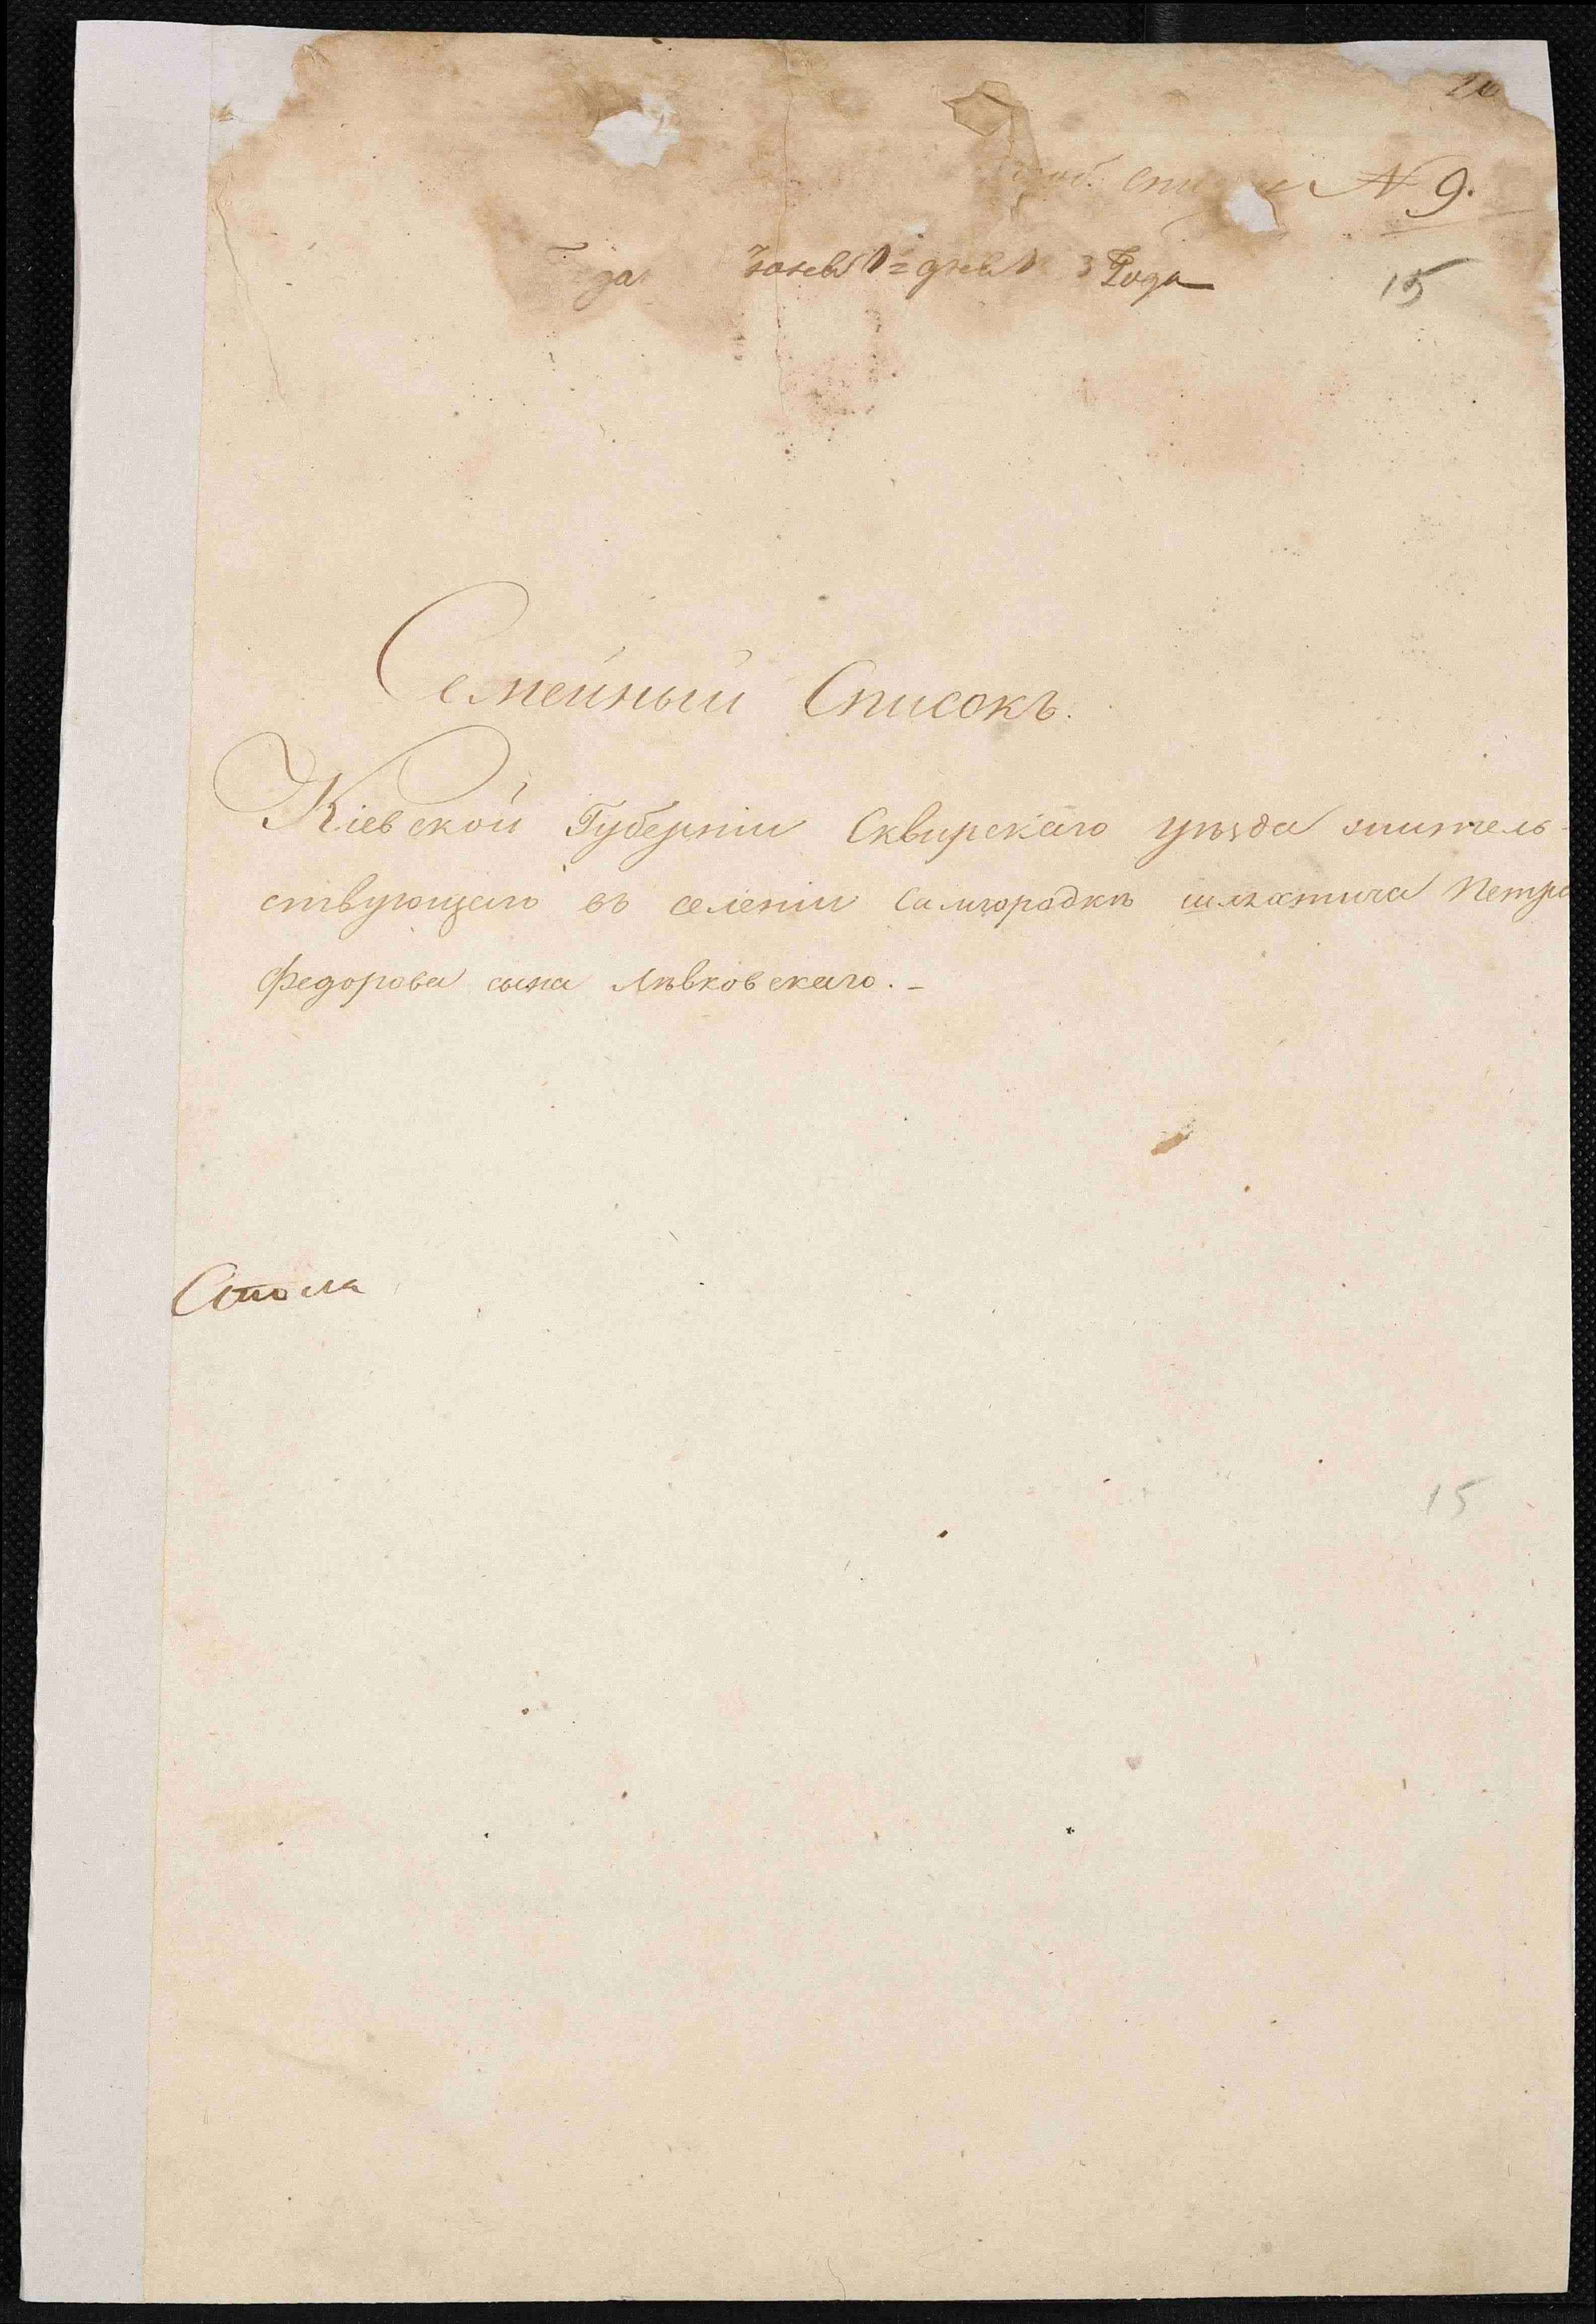 20
№ 9.
Года
15
Семейный Списокъ.
Кіевской Губерніи Сквирскаго уѣзда житель-
ствующаго въ селеніи Самгородкѣ шляхтича Петра
Федорова сына Лѣвковскаго. -
Стола
15